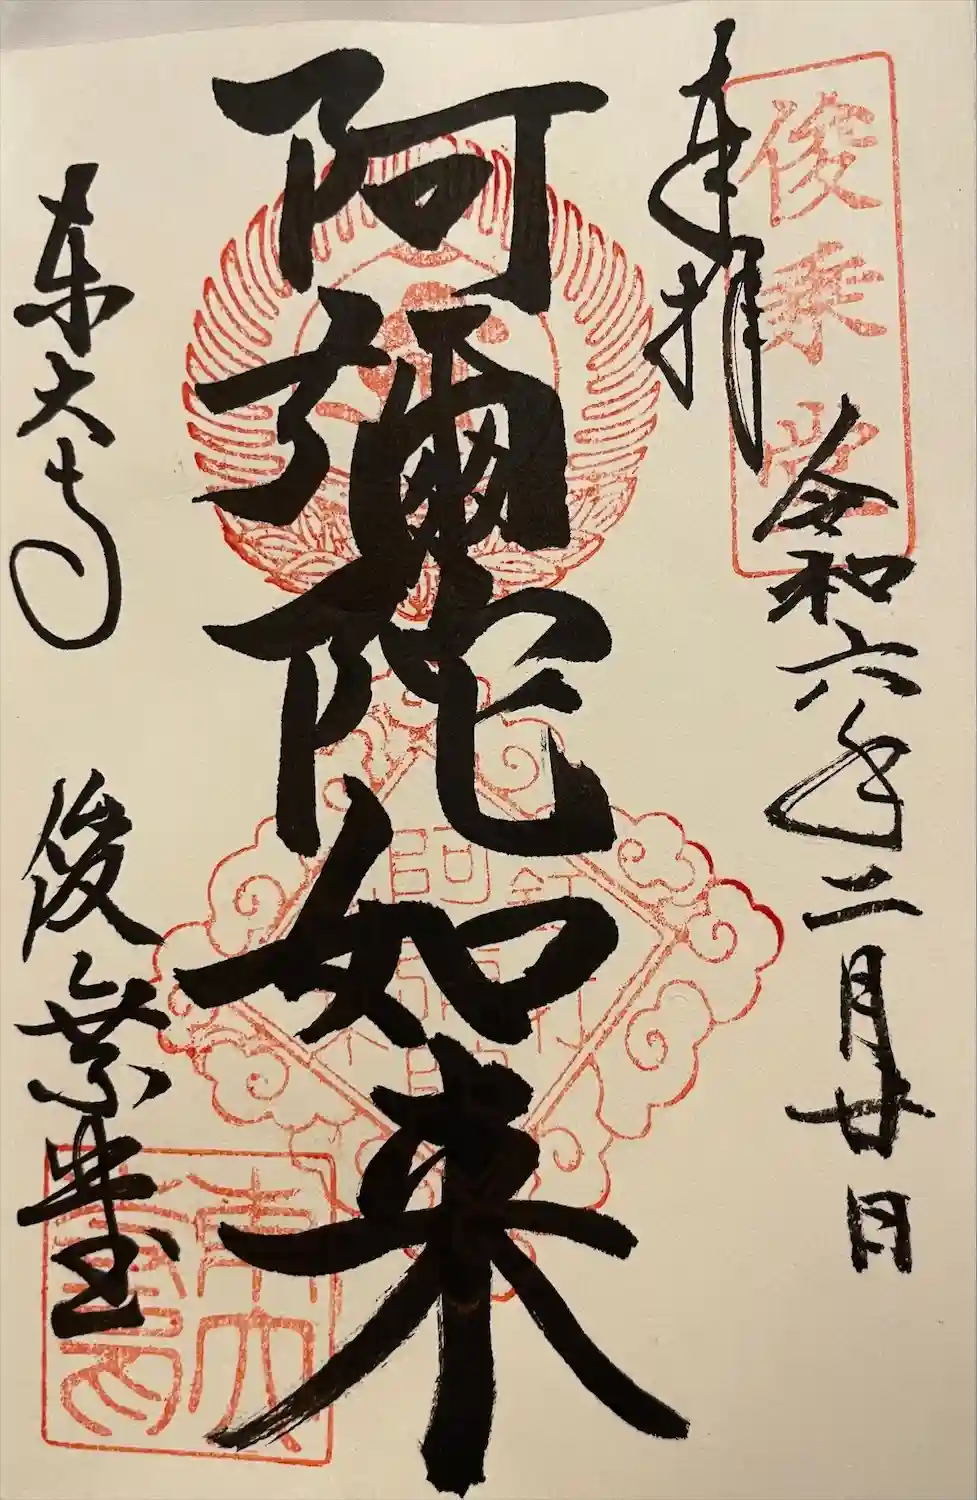 奉拝
俊乗堂
令和六年二月廿日
阿彌陀如来
東大寺
俊乗堂